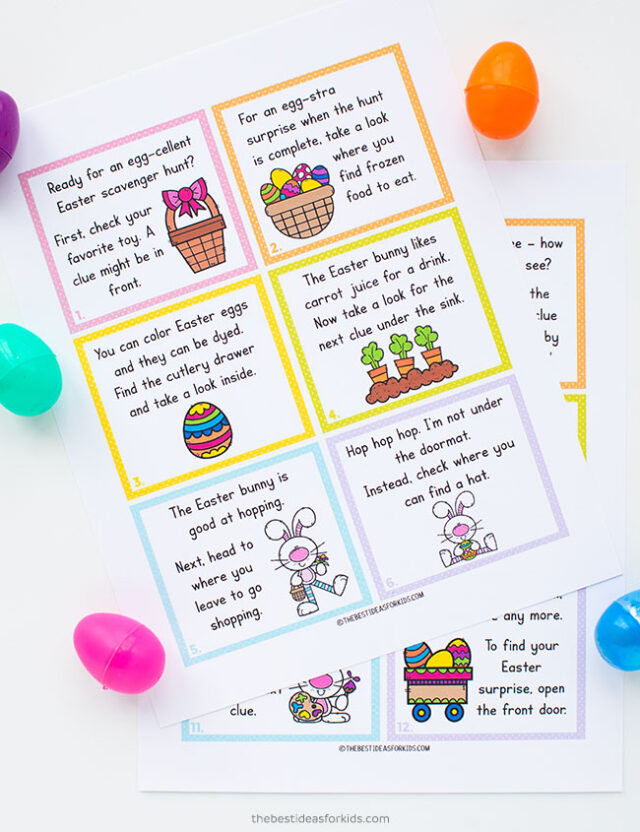 Ready for an egg-cellent
Easter scavenger hunt?
First, check your
favorite toy. A
clue might be in
front.
1.
For an egg-stra
surprise when the hunt
is complete, take a look
where you
find frozen
food to eat.
2.
You can color Easter eggs
and they can be dyed.
Find the cutlery drawer
and take a look inside.
3.
The Easter bunny likes
carrot juice for a drink.
Now take a look for the
next clue under the sink.
4.
The Easter bunny is
good at hopping.
Next, head to
where you
leave to go
shopping.
5.
Hop hop hop, I'm not under
the doormat.
Instead, check where you
can find a hat.
6.
©THEBESTIDEASFORKIDS.COM
– how
see?
the
clue
by
clue.
11.
any more.
To find your
Easter
surprise, open
the front door.
12.
©THEBESTIDEASFORKIDS.COM
thebestideasforkids.com